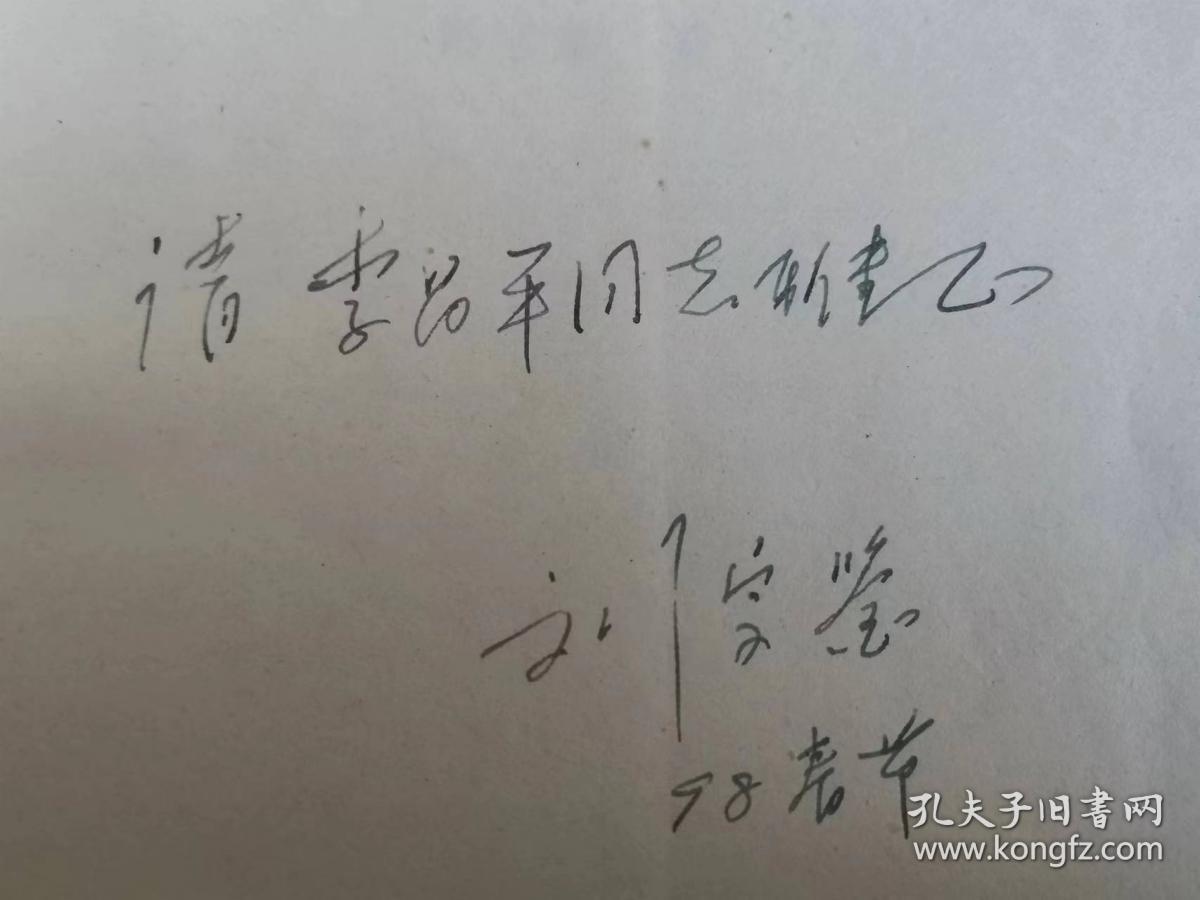 请李昌平同志雅正
刘定鉴
98春节
孔夫子旧书网
www.kongfz.com